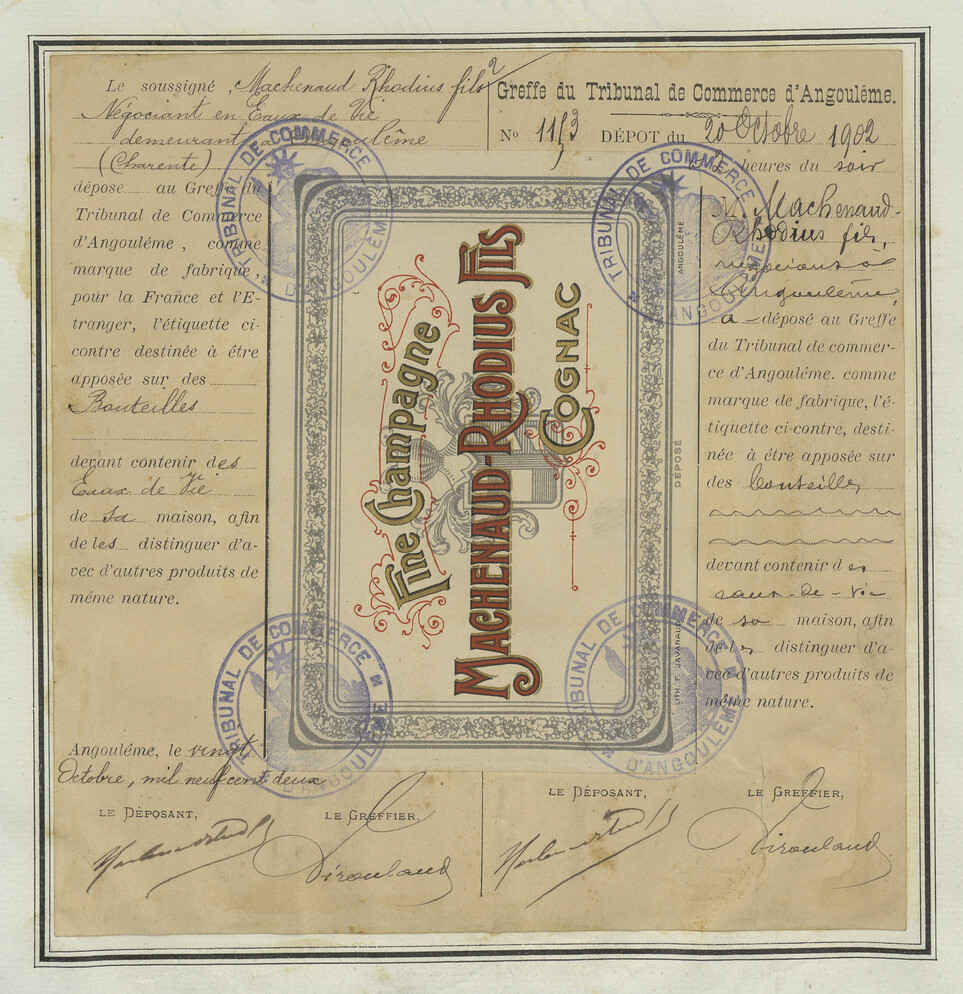 Le soussigné, Machenaud Rhodius fils
Négociant en Eaux de Vie
demeurant à Angoulême
(Charente)
dépose au Greffe du
Tribunal de Commerce
d'Angoulême, comme
marque de fabrique,
pour la France et l'E-
tranger, l'étiquette ci-
contre destinée à être
apposée sur des
Bouteilles
devant contenir des
Eaux de Vie
de sa maison, afin
de les distinguer d'a-
vec d'autres produits de
même nature.
Angoulême, le vingt
Octobre, mil neuf cent deux
LE DÉPOSANT,
LE GREFFIER,
2
Greffe du Tribunal de Commerce d'Angoulême.
No 1153 DÉPOT du 20 Octobre 1902
2 heures du soir
M. Machenaud-
Rhodius fils,
négociant à
Angoulême,
a déposé au Greffe
du Tribunal de commer-
ce d'Angoulême. comme
marque de fabrique, l'é-
tiquette ci-contre, desti-
née à être apposée sur
des bouteilles
devant contenir des
eaux-de-vie
de sa maison, afin
de les distinguer d'a-
vec d'autres produits de
même nature.
LE DÉPOSANT,
LE GREFFIER,
Fine Champagne
MACHENAUD-RHODIUS FILS
COGNAC
DÉPOSÉ
LITH. F. JAVANAUD
ANGOULÊME
TRIBUNAL DE COMMERCE D'ANGOULÊME
TRIBUNAL DE COMMERCE D'ANGOULÊME
TRIBUNAL DE COMMERCE D'ANGOULÊME
TRIBUNAL DE COMMERCE D'ANGOULÊME